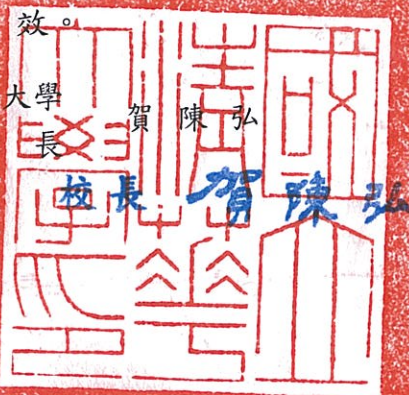 效。
大學
長
賀 陳 弘
校長 賀陳弘
國立
清華
大學印